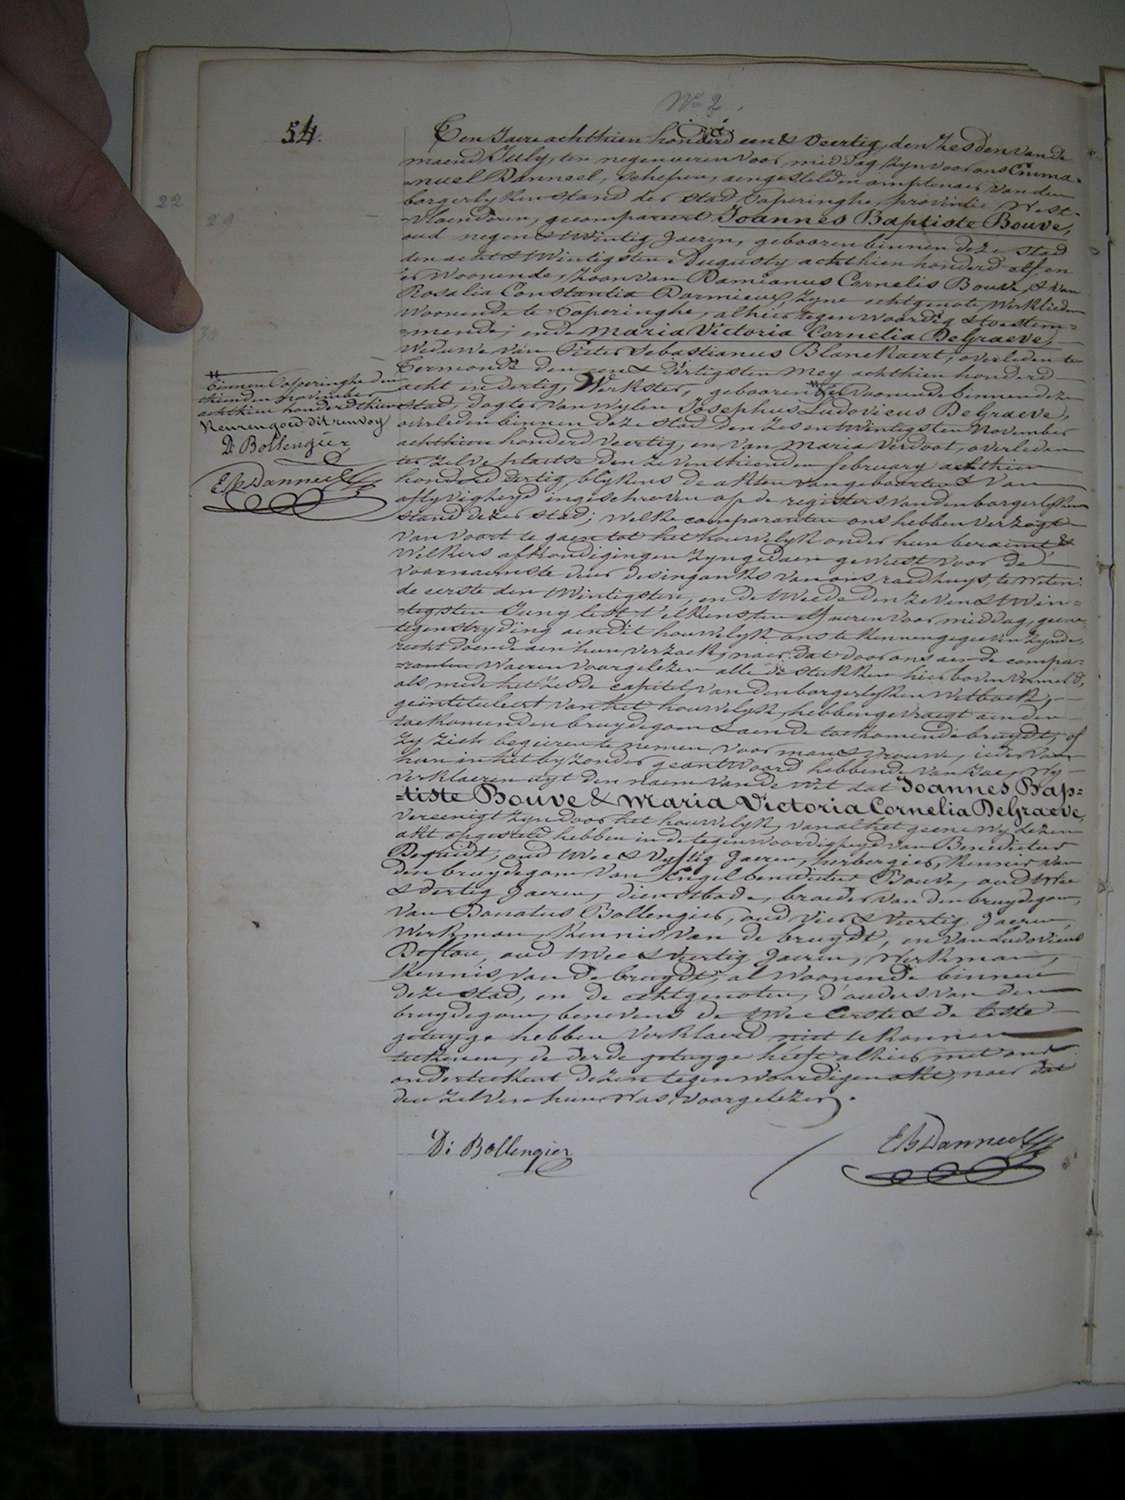 No 2.
54.
Een Jaere achthien honderd een & veertig, den zesden van de
maend July, ten negen ueren voor middag, zyn voor ons Emma-
nuel Danneel, schepen, aengestelden amptenaer van den
borgerlyken stand der stad Poperinghe, provintie West-
Vlaenderen, gecompareert Joannes Baptiste Bouve,
oud negen & twintig Jaeren, gebooren binnen deze stad
den acht & twintigsten Augusty achthien honderd elf en
er woonende, zoon van Damianus Cornelis Bouve, & van
Rosalia Constantia Darmieux, zyne echtgenote, werklieden
woonende te Poperinghe, alhier tegenwoordig & toestem-
mende; ende Maria Victoria Cornelia DeGraeve,
weduwe van Pieter Sebastianus Blanckaert, overleden te
Dermonde den een & dertigsten Mey achthien honderd
acht en dertig, Werkster, gebooren & woonende binnen deze
stad, dogter van wylen Josephus Ludovicus DeGraeve,
overleden binnen deze stad den zes en twintigsten November
achthien honderd veertig, en van Maria Verdoot, overleden
ter zelve plaetse den zeventhienden february achthien
honderd dertig, blykens de akten van geboorten & van
aflyvigheyd ingeschreven op de registers van den borgerlyken
stand dezer stad; welke comparanten ons hebben verzogt
van voort te gaen tot het houwelyk onder hun beraemt &
welkers afkondigingen zyn gedaen geweest voor de
voornaemste deur des inganks van ons raedhuys, te weten:
de eerste den twintigsten, en de tweede den zeven & twin-
tigsten Juny lest t'elkens ten elf ueren voor middag, geene
tegenstryding aen dit houwelyk ons te kennen gegeven zynde,
recht doende aen hun verzoek, naer dat door ons aen de compa-
ranten waeren voorgelezen alle de stukken hier boven vermeld,
als mede het zesde capitel van den borgerlyken wetboek,
geïntituleert van het houwelyk, hebben gevraegt aen den
toekomenden bruydegom & aen de toekomende bruydt, of
zy zich begeeren te nemen voor man & vrouwe, ieder van
hun in het byzonder geantwoord hebbende van Jae, wy
verklaeren uyt den naem van de wet dat Joannes Bap-
tiste Bouve & Maria Victoria Cornelia DeGraeve,
vereenigt zyn door het houwelyk, van al het geene wy dezen
akt opgesteld hebben in de tegenwoordigheyd van Benedictus
oud twee & vyftig Jaeren, herbergier, kennis van
den bruydegom, van Engel benedictus Bouve, oud twee
& dertig Jaeren, dienstbode, broeder van den bruydegom,
van Donatus Bollengier, oud vier & veertig Jaeren,
werkman, kennis van de bruydt, en van Ludovicus
Deflou, oud twee & veertig Jaeren, werkman,
kennis van de bruydt, al woonende binnen
deze stad, en de echtgenoten, d'ouders van den
bruydegom, benevens de twee eerste & de leste
getuyge hebben verklaerd niet te konnen
teekenen, de derde getuyge heeft alhier met ons
onderteekent dezen tegenwoordigen akt, naer dat
den zelven hun was voorgelezen.
Di Bollengier
E Danneel
binnen Poperinghe den
thienden november
achthien honderd thien
Keuren goed dit renvoy
D: Bollengier
E Danneel
22